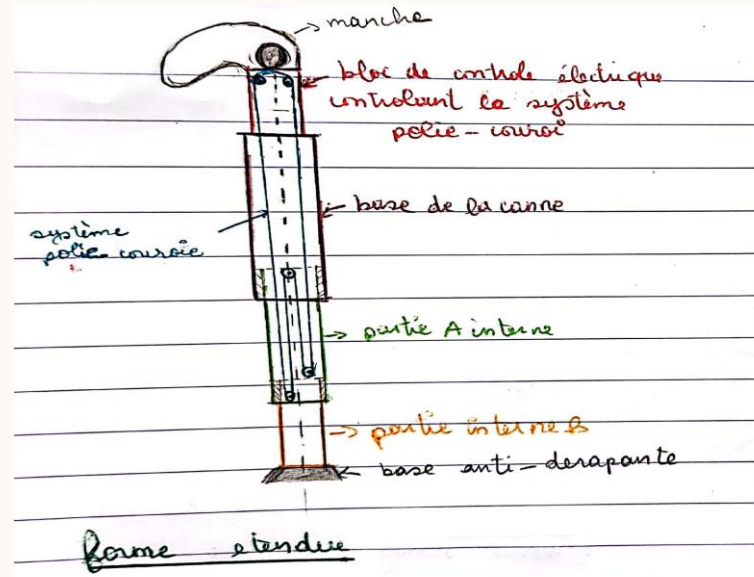 manche
bloc de controle électrique
controlant le système
polie - couroi
base de la canne
système
polie-couroie
partie A interne
partie interne B
base anti-derapante
forme etendue